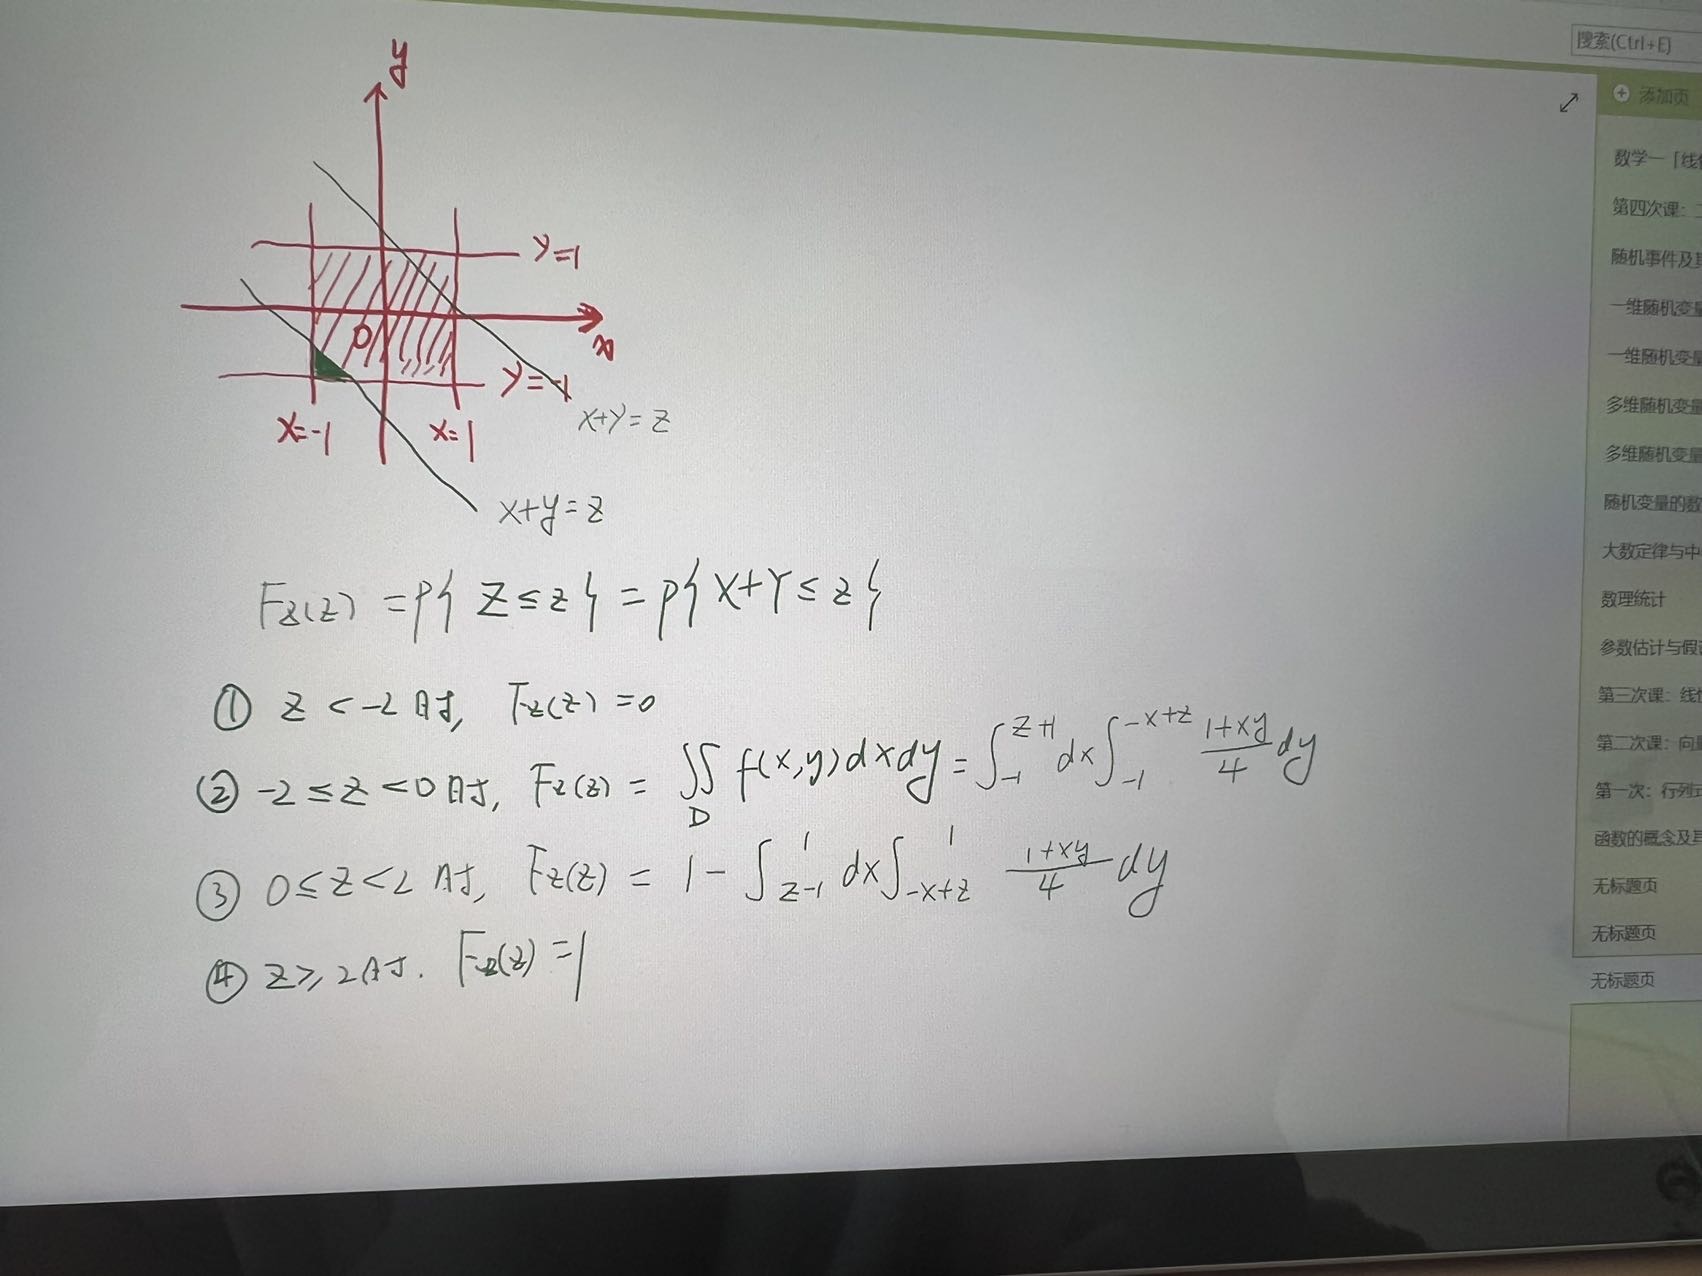 搜索(Ctrl+E)
添加页
数学一「线
第四次课:
随机事件及
一维随机变量
一维随机变量
多维随机变量
多维随机变量
随机变量的数
大数定律与中
数理统计
参数估计与假
第三次课: 线
第二次课: 向量
第一次: 行列式
函数的概念及其
无标题页
无标题页
无标题页
y
y=1
0
x
y=-1
x=-1
x=1
x+y=z
x+y=z
F_Z(z) = P{ Z ≤ z } = P{ X+Y ≤ z }
① z < -2 时, F_Z(z) = 0
② -2 ≤ z < 0 时, F_Z(z) = ∬_D f(x,y)dxdy = ∫_{-1}^{z+1} dx ∫_{-1}^{-x+z} (1+xy)/4 dy
③ 0 ≤ z < 2 时, F_Z(z) = 1 - ∫_{z-1}^{1} dx ∫_{-x+z}^{1} (1+xy)/4 dy
④ z ≥ 2 时. F_Z(z) = 1